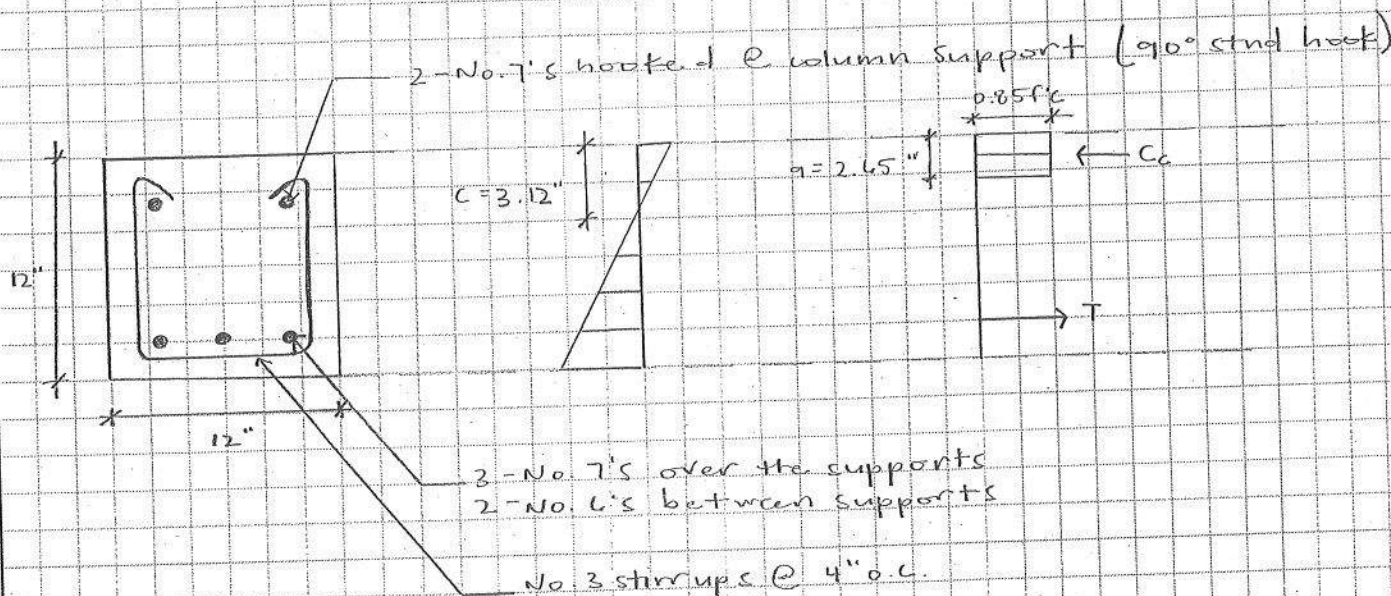 2-No.7's hooked @ column support (90° stnd hook)
0.85f'c
C = 3.12"
a = 2.65"
Cc
12"
T
12"
3-No. 7's over the supports
2-No. 6's between supports
No. 3 stirrups @ 4" o.c.